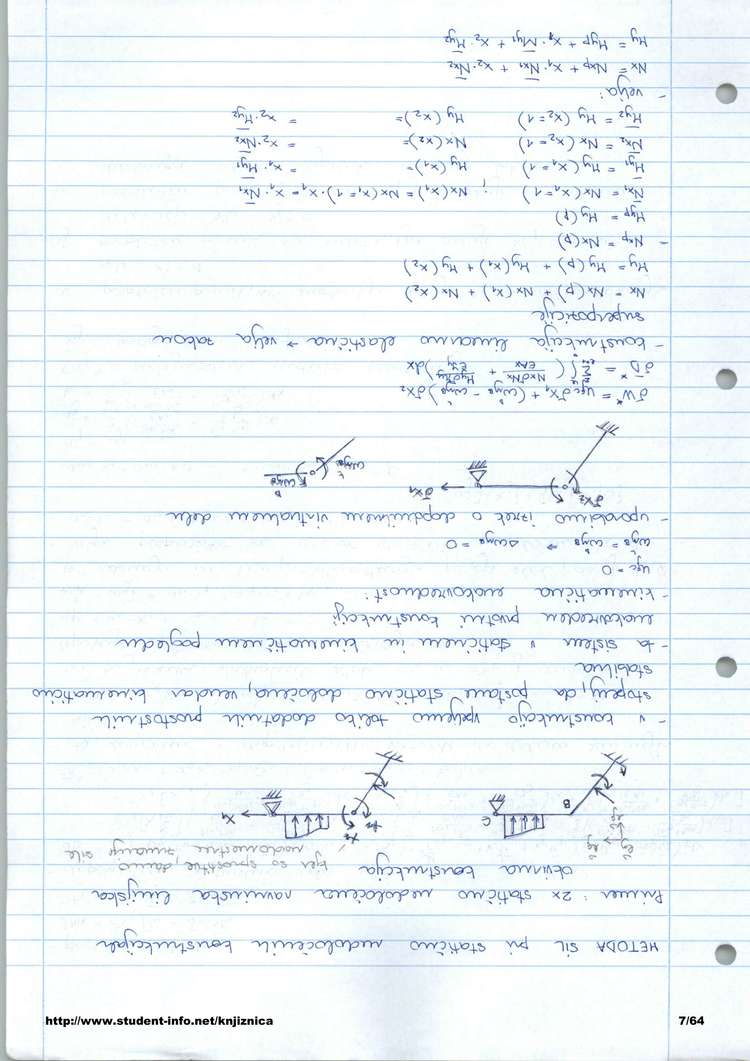 METODA SIL pri statično nedoločenih konstrukcijah
Primer: 2x statično nedoločena ravninska linijska
okvirna konstrukcija
kjer so sprostitve, damo
nadomestne zunanje sile
B
C
X₂
X₂
X₁
- v konstrukcijo vpeljemo toliko dodatnih prostostnih
stopenj, da postane statično določena, vendar kinematično
stabilna
- ta sistem v statičnem in kinematičnem pogledu
enakovreden prvotni konstrukciji
- kinematična enakovrednost:
uₓc = 0
- uporabimo izrek o dopolnilnem virtualnem delu
δX₂
δX₁
- konstrukcija linearno elastična → velja zakon
superpozicije
Nx = Nx(p) + Nx(x₁) + Nx(x₂)
My = My(p) + My(x₁) + My(x₂)
- Nxp = Nx(p)
Myp = My(p)
N̄x₁ = Nx(x₁=1) ; Nx(x₁) = Nx(x₁=1)·x₁ = x₁·N̄x₁
M̄y₁ = My(x₁=1) My(x₁)= = x₁·M̄y₁
N̄x₂ = Nx(x₂=1) Nx(x₂)= = x₂·N̄x₂
M̄y₂ = My(x₂=1) My(x₂)= = x₂·M̄y₂
- velja:
Nx = Nxp + x₁·N̄x₁ + x₂·N̄x₂
My = Myp + x₁·M̄y₁ + x₂·M̄y₂
http://www.student-info.net/knjiznica 7/64